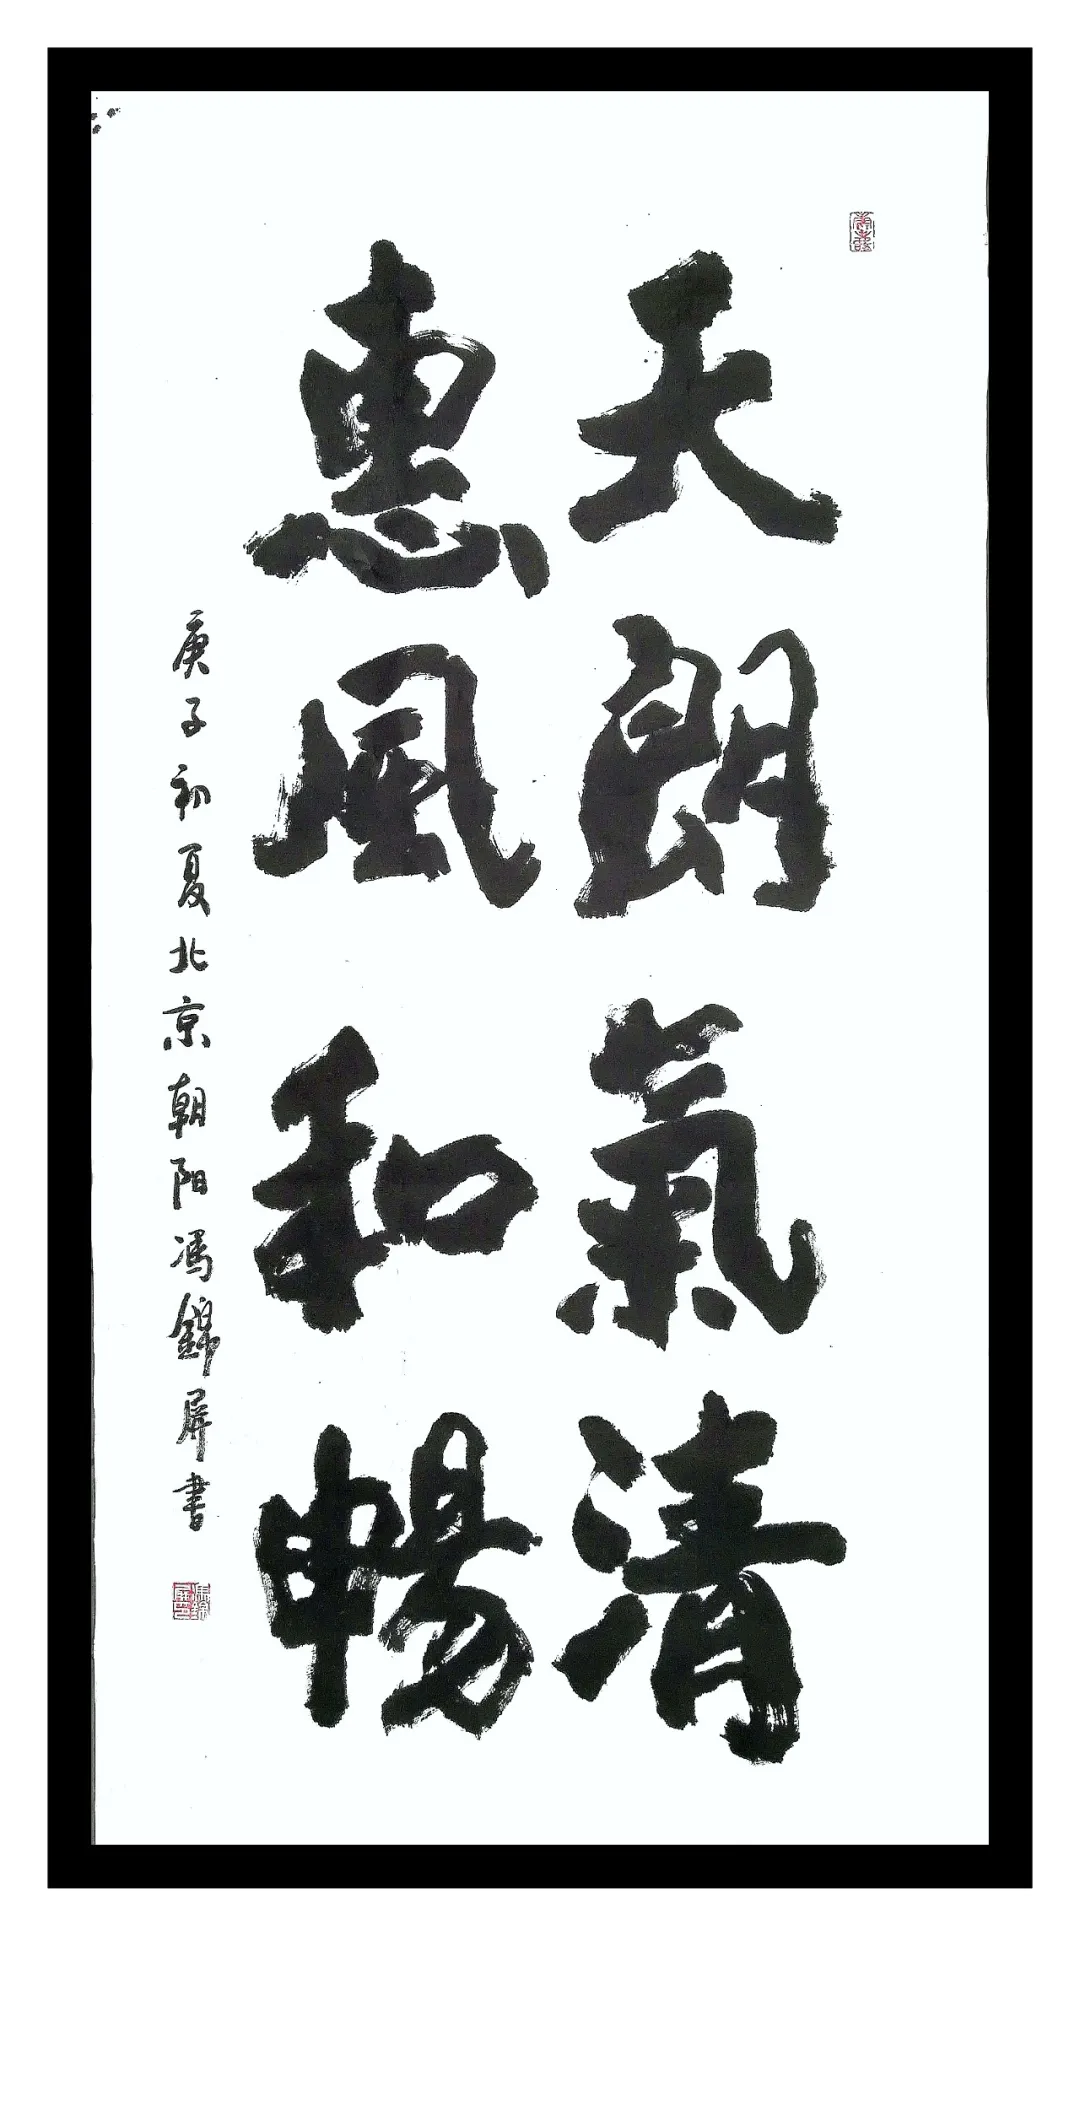 天朗氣清
惠風和暢
庚子初夏北京朝阳馮錦屏书